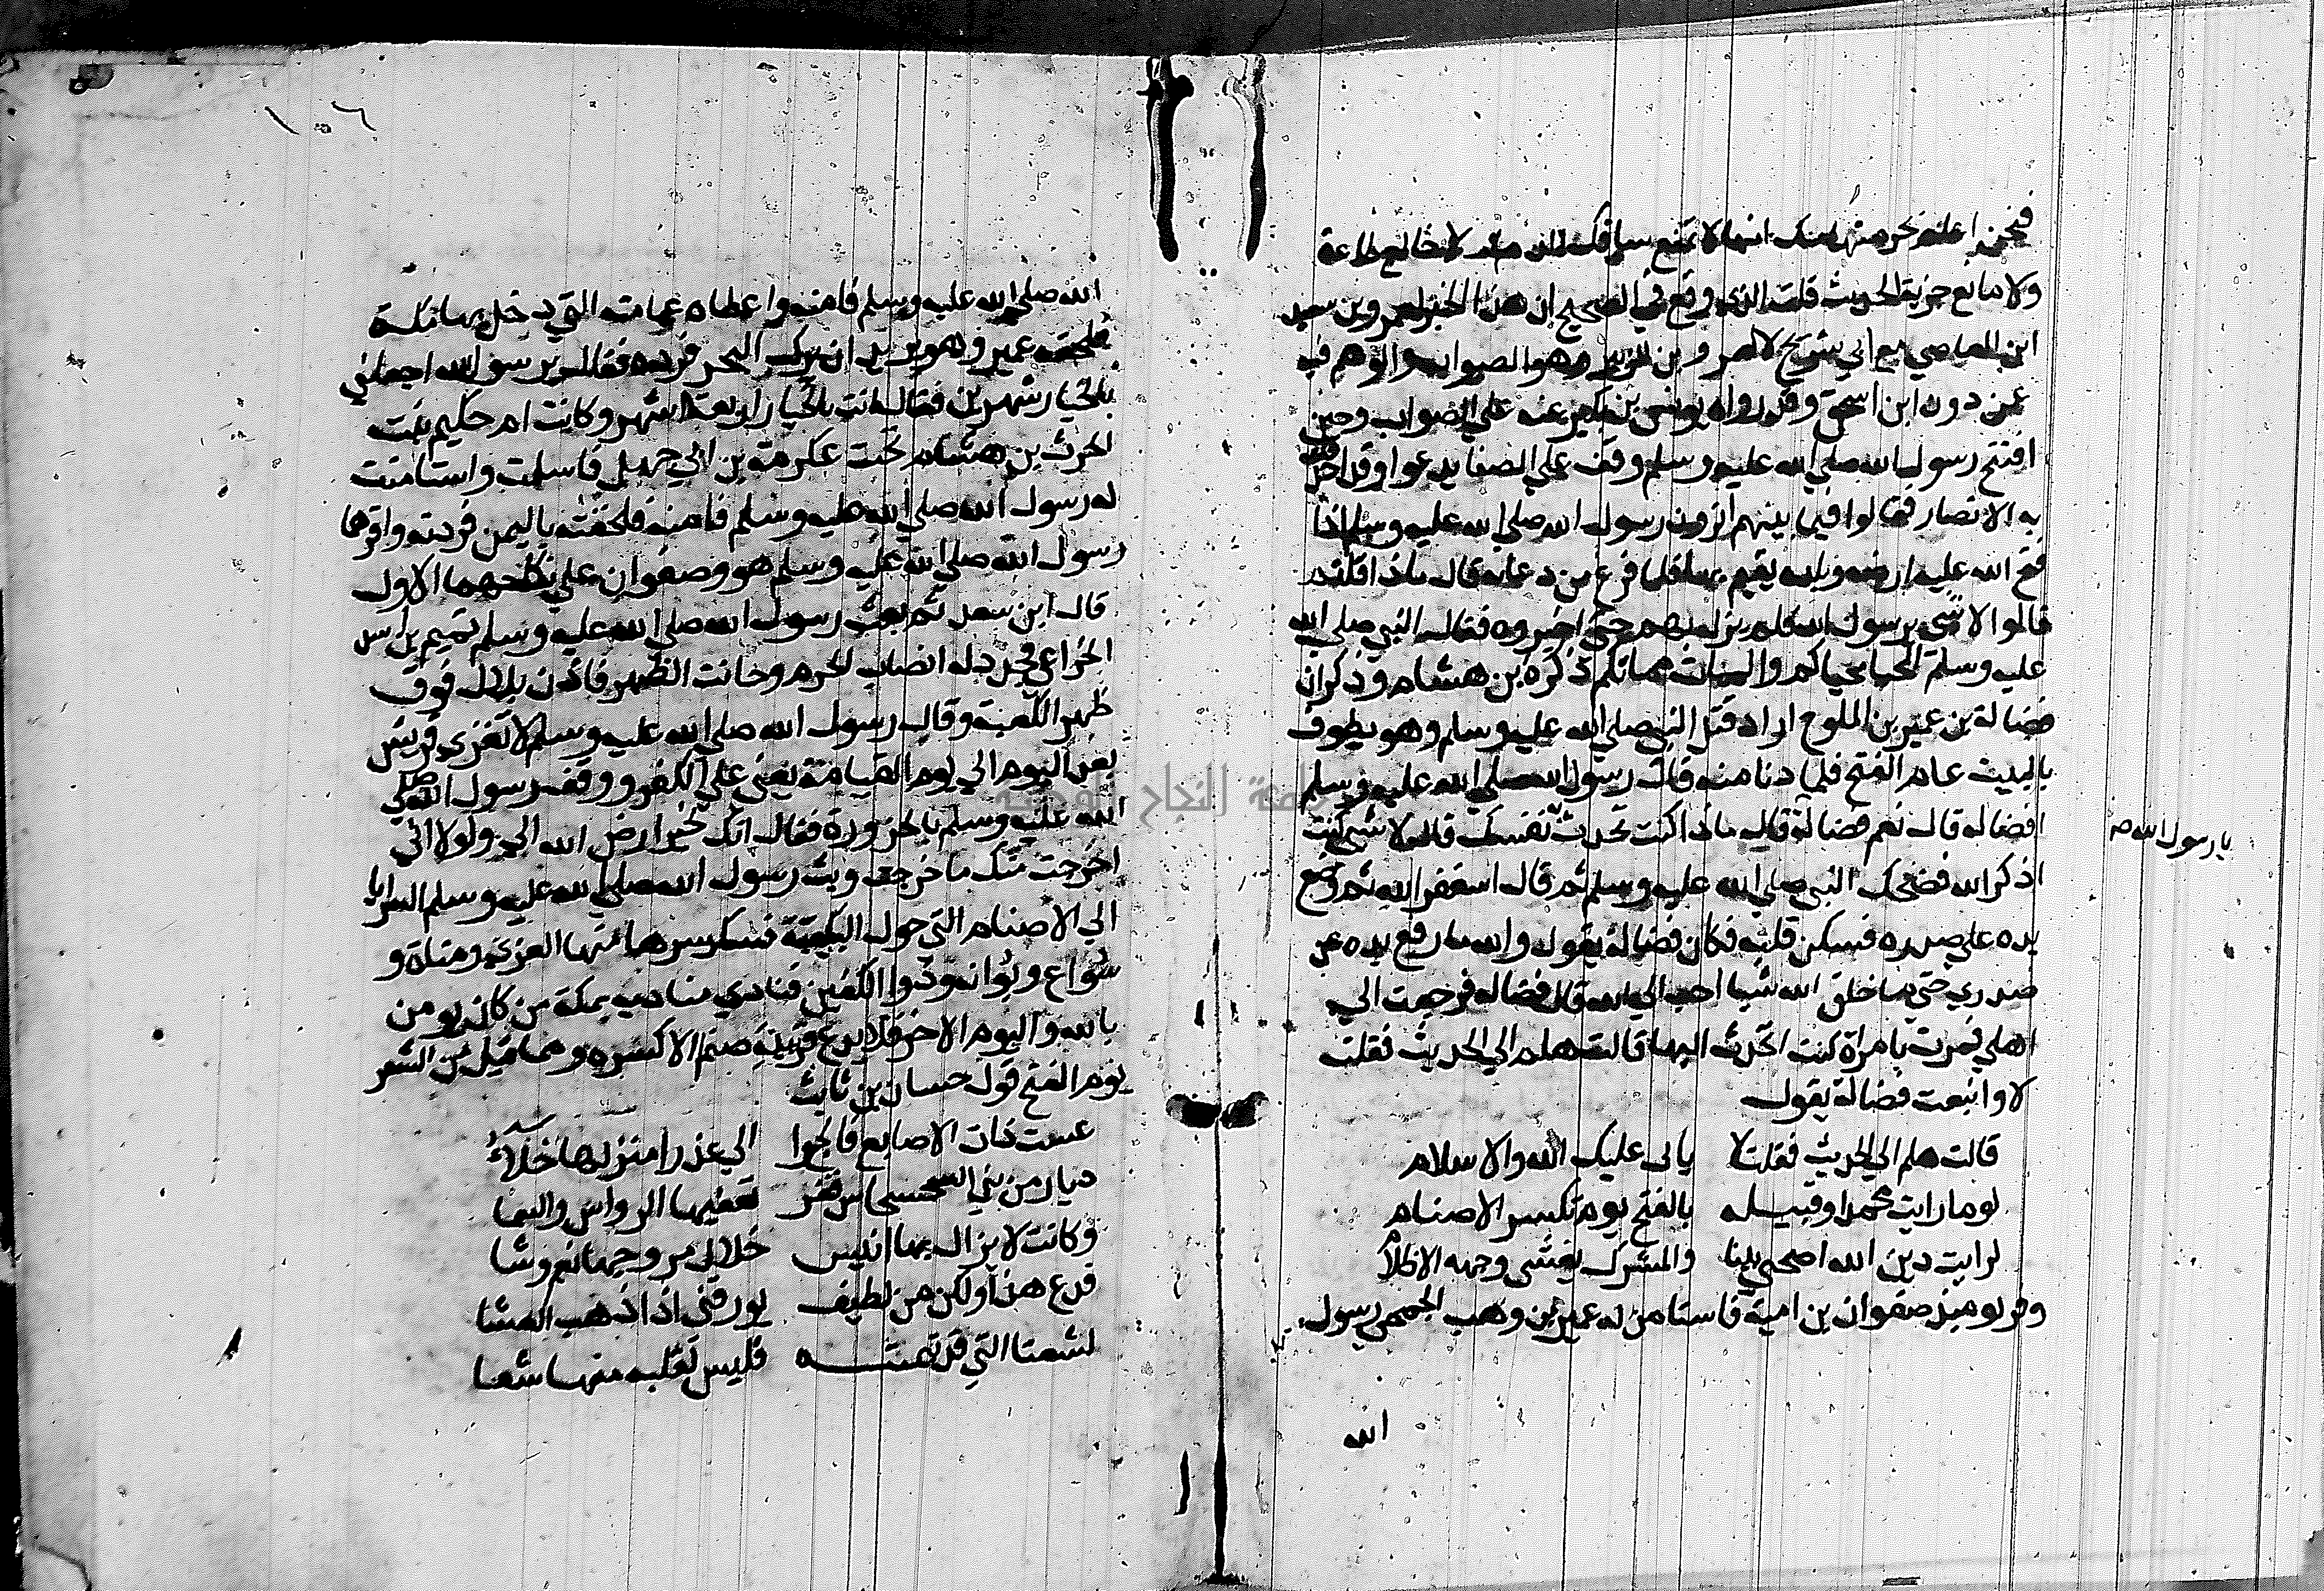 فنحن اعلم بحرمتها منك انها لا تمنع سافك دم ولا خالع طاعة
ولا مانع جزية الحديث قلت الذي وقع في الصحيح ان هذا الخبر لعمرو بن سعيد
ابن العاصي مع ابي شريح لا لعمرو بن الزبير وهو الصواب والوهم فيه
عمن دون ابن اسحق وقد رواه يونس بن بكير عنه علي الصواب وحين
افتتح رسول الله صلي الله عليه وسلم وقف علي الصفا يدعوا وقد احدقت
به الانصار فقالوا فيما بينهم اترون رسول الله صلي الله عليه وسلم اذا
فتح الله عليه ارضه وبلده يقيم بها فلما فرغ من دعايه قال ماذا قلتم
قالوا لا شي يرسول الله فلم يزل بهم حتي اخبروه فقال النبي صلي الله
عليه وسلم المحيا محياكم والممات مماتكم ذكره بن هشام وذكر ان
فضالة بن عمير بن الملوح اراد قتل النبي صلي الله عليه وسلم وهو يطوف
بالبيت عام الفتح فلما دنا منه قال رسول الله صلي الله عليه وسلم
افضاله قال نعم فضالة قال ماذا كنت تحدث نفسك قال لا شي كنت
يا رسول الله
اذكر الله فضحك النبي صلي الله عليه وسلم ثم قال استغفر الله ثم وضع
يده علي صدره فسكن قلبه فكان فضالة يقول والله ما رفع يده عن
صدري حتي ما خلق الله شيا احب الي منه قال فضاله فرجعت الي
اهلي فمرت بامراة كنت اتحدث اليها قالت هلم الي الحديث فقلت
لا وانبعث فضالة يقول
قالت هلم الي الحديث فقلت لا يابي عليك الله والاسلام
لو ما رايت محمدا وقبيله بالفتح يوم تكسر الاصنام
لرايت دين الله اضحي بينا والشرك يغشي وجهه الاظلام
وفر يوميذ صفوان بن امية فاستامن له عمير بن وهب الجمحي رسول
الله
١٠٦
الله صلي الله عليه وسلم فامنه واعطاه عمامته التي دخل بها مكة
فلحقه عمير وهو يريد ان يركب البحر فرده فقال يرسول الله اجعلني
بالخيار شهرين فقال انت بالخيار اربعة اشهر وكانت ام حكيم بنت
الحرث بن هشام تحت عكرمة بن ابي جهل فاسلمت واستامنت
له رسول الله صلي الله عليه وسلم فامنه فلحقته باليمن فردته واقرهما
رسول الله صلي الله عليه وسلم هو وصفوان علي نكاحهما الاول
قال ابن سعد ثم بعث رسول الله صلي الله عليه وسلم تميم بن اسد
الخزاعي فجدد انصاب الحرم وحانت الظهر فاذن بلال فوق
ظهر الكعبة وقال رسول الله صلي الله عليه وسلم لا تغزي قريش
بعد اليوم الي يوم القيامة يعني علي الكفر ووقف رسول الله صلي
الله عليه وسلم بالحزورة فقال انك لخير ارض الله الي ولولا اني
اخرجت منك ما خرجت وبث رسول الله صلي الله عليه وسلم السرايا
الي الاصنام التي حول الكعبة فكسرها منها العزي ومناة و
سواع وبوانه وذوا الكفين فنادي مناديه بمكة من كان يومن
بالله واليوم الاخر فلا يدع في بيته صنم الا كسره ومما قيل من الشعر
يوم الفتح قول حسان بن ثابت
عفت ذات الاصابع فالجوا الي عذرا منزلها خلاء
ديار من بني الحسحاس قفر تعفيها الروامس والسما
وكانت لا يزال بها انيس خلال مروجها نعم وشا
فدع هذا ولكن من لطيف يورقني اذا ذهب العشا
لشعثا التي قد تيمته فليس لقلبه منها شفا